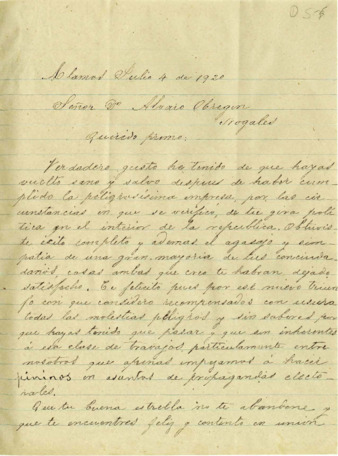 D 5 6
Alamos Julio 4 de 1920
Señor Dn Alvaro Obregon
Nogales
Querido primo:
Verdadero gusto he tenido de que hayas
vuelto sano y salvo despues de haber cum-
plido la peligrosisima empresa, por las cir-
cunstancias en que se verifico, de tu gira poli-
tica en el interior de la republica. Obtuvis-
te exito completo y ademas el agasajo y sim-
patia de una gran mayoria de tus conciuda
danos, cosas ambas que creo te habran dejado
satisfecho. Te felicito pues por ese nuevo triun-
fo con que considero recompensados con usura
todas las molestias, peligros y sin sabores, por
que hayas tenido que pasar y que son inherentes
á esa clase de trabajos, particularmente entre
nosotros que apenas empezamos á hacer
pininos en asuntos de propagandas electo-
rales.
Que tu buena estrella no te abandone y
que te encuentres feliz y contento en union